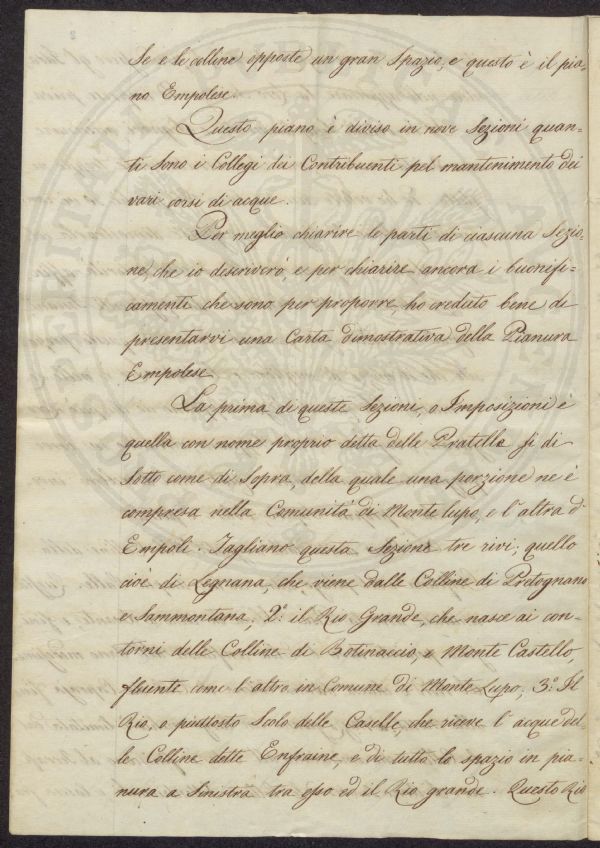 Se e le colline opposte un gran spazio, e questo è il pia-
no Empolese.
Questo piano è diviso in nove Sezioni quan-
ti sono i Collegi dei Contribuenti pel mantenimento dei
vari corsi di acque.
Per meglio chiarire le parti di ciascuna Sezio-
ne, che io descriverò, e per chiarire ancora i buonifi-
camenti che sono per proporre, ho creduto bene di
presentarvi una Carta dimostrativa della Pianura
Empolese
La prima di queste Sezioni, o Imposizioni è
quella con nome proprio detta delle Pratella sì di
Sotto come di Sopra, della quale una porzione ne è
compresa nella Comunità di Monte lupo, e l'altra d'
Empoli. Tagliano questa Sezione tre rivi; quello
cioè di Legnana, che viene dalle Colline di Pretognano
e Sammontana, 2.º il Rio Grande, che nasce ai con-
torni delle Colline di Botinaccio, e Monte Castello,
fluente come l'altro in Comune di Monte Lupo; 3.º Il
Rio, o piuttosto Scolo delle Caselle, che riceve l'acque del-
le Colline dette Enfraine, e di tutto lo spazio in pia-
nura a Sinistra tra esso ed il Rio grande. Questo Rio